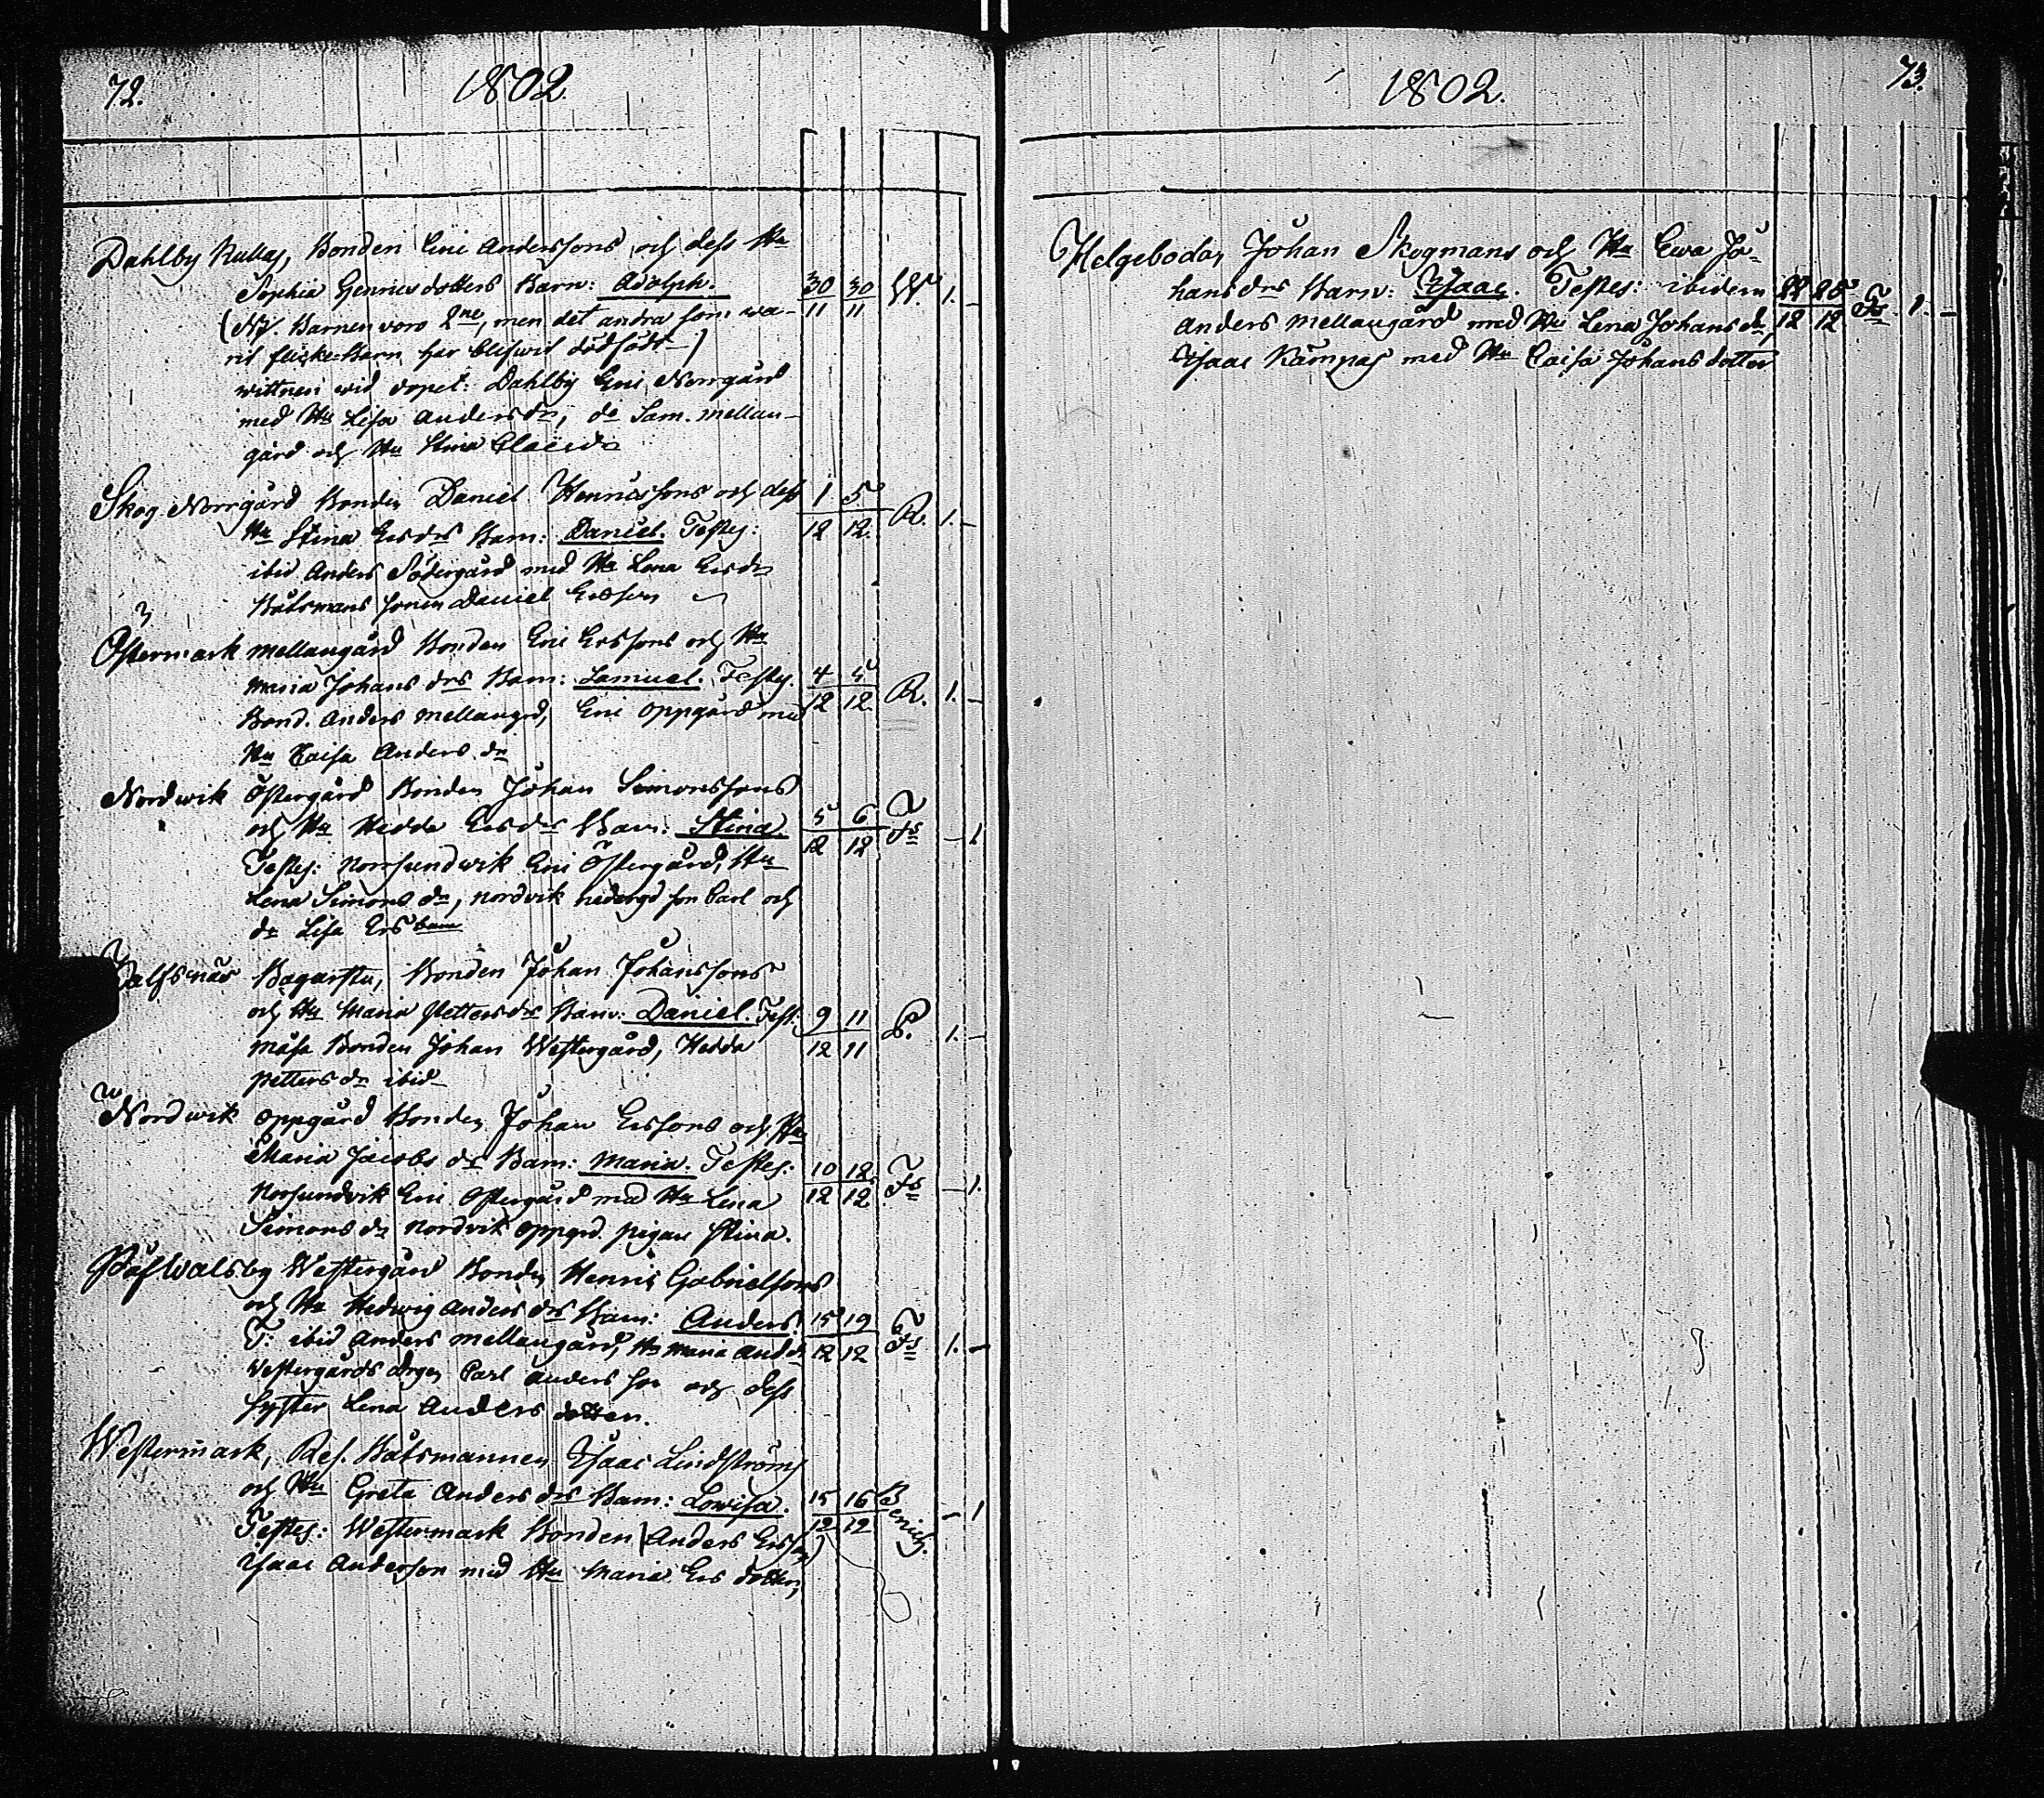 72. 1802.
Dahlby Kullas, Bonden Eric Anderssons och dess Hu
Sophia Henricsdotters Barn: Adolph. 30/11 30/11 W. 1. –
(NB. Barnen voro 2ne, men det andra som wa-
rit flicke-Barn har blifwit dödfödt)
wittnen wid dopet: Dahlby Eric Norrgård
med Hu Lisa Andersdr, do Sam. mellan-
gård och Hu Stina
Skog Norrgård Bonden Daniel Henricssons och dess
Hu Stina Ersdrs Barn: Daniel. Testes: 1/12 5/12 R. 1. –
ibid Anders Södergård med Hu Lena Ersdr
Båtsmans sonen Daniel Ersson
Östermark mellangård Bonden Eric Erssons och Hu
Maria Johans drs Barn: Samuel. Testes. 4/12 5/12 R. 1. –
Bond. Anders mellangrd, Eric oppgård med
Hu Caisa Anders dr
Nordwik östergård Bonden Johan Simonssons
och Hu Hedda Ersdrs Barn: Stina. 5/12 6/12 – 1
Testes: Norrsundwik Eric Östergård, Hu
Lena Simons dr, nordvik nedergd son Carl och
do Lisa Ers barn
Dalfsnäs Bagarstu, Bonden Johan Johanssons
och Hu Maria Pettersdrs Barn: Daniel. Test. 9/12 11/11 P. 1. –
Måsa Bonden Johan Westergård, Hedda
Petters dr ibid
Nordwik oppgård Bonden Johan Erssons och Hu
Maria Jacobs drs Barn: Maria. Testes: 10/12 12/12 – 1.
Norsundvik Eric Östergård med Hu Lena
Simons dr Nordvik oppgrd. pigan Stina.
Påfwalsby Westergård Bonden Henric Gabrielssons
och Hu Hedwig Anders drs Barn: Anders 15/12 19/12 1. –
T: ibid Anders mellangård, Hu Maria And dr
Westergårds drgen Carl Anders son och dess
syster Lena Anders dotter.
Westermark, Res. Båtsmannen Isaac Lindströms
och Hu Greta Anders drs Barn: Lowisa. 15/12 16/12 – 1
Testes: Westermark Bonden (Anders Ersson)
Isaac Anderson med Hu Maria Ers dotter,
1802. 73.
Helgeboda, Johan Skogmans och Hu Ewa Jo-
hansdrs Barn: Isaac. Testes: ibidem 22/12 25/12 1. –
Anders mellangård med Hu Lena Johans dr,
Isaac Kämpas med Hu Caisa Johans dotter